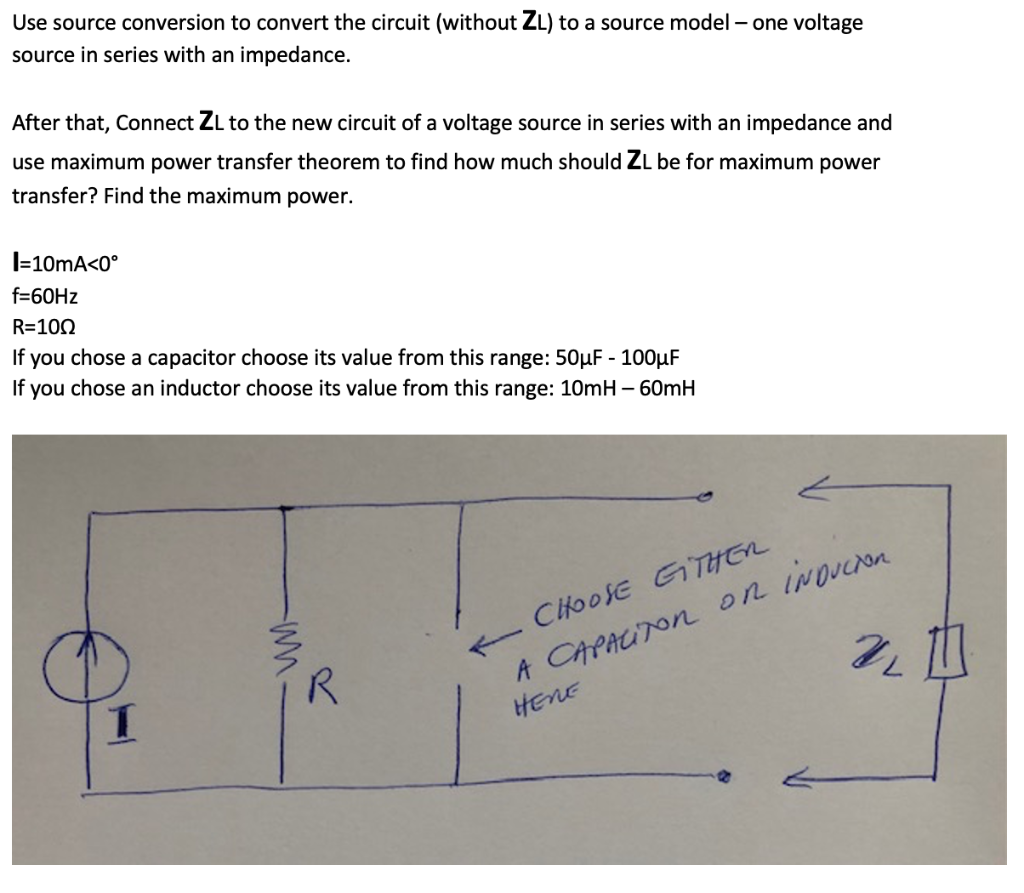 Use source conversion to convert the circuit (without ZL) to a source model – one voltage
source in series with an impedance.
After that, Connect ZL to the new circuit of a voltage source in series with an impedance and
use maximum power transfer theorem to find how much should ZL be for maximum power
transfer? Find the maximum power.
I=10mA<0°
f=60Hz
R=10Ω
If you chose a capacitor choose its value from this range: 50µF - 100µF
If you chose an inductor choose its value from this range: 10mH – 60mH
CHOOSE EITHER
A CAPACITOR OR INDUCTOR
HERE
I
R
ZL